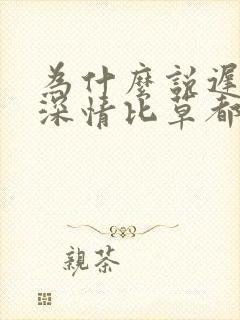 為什麼說遲
深情比草都
親茶